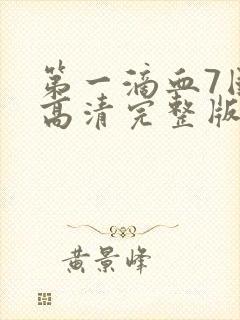 第一滴血7国
高清完整版
黄景峰